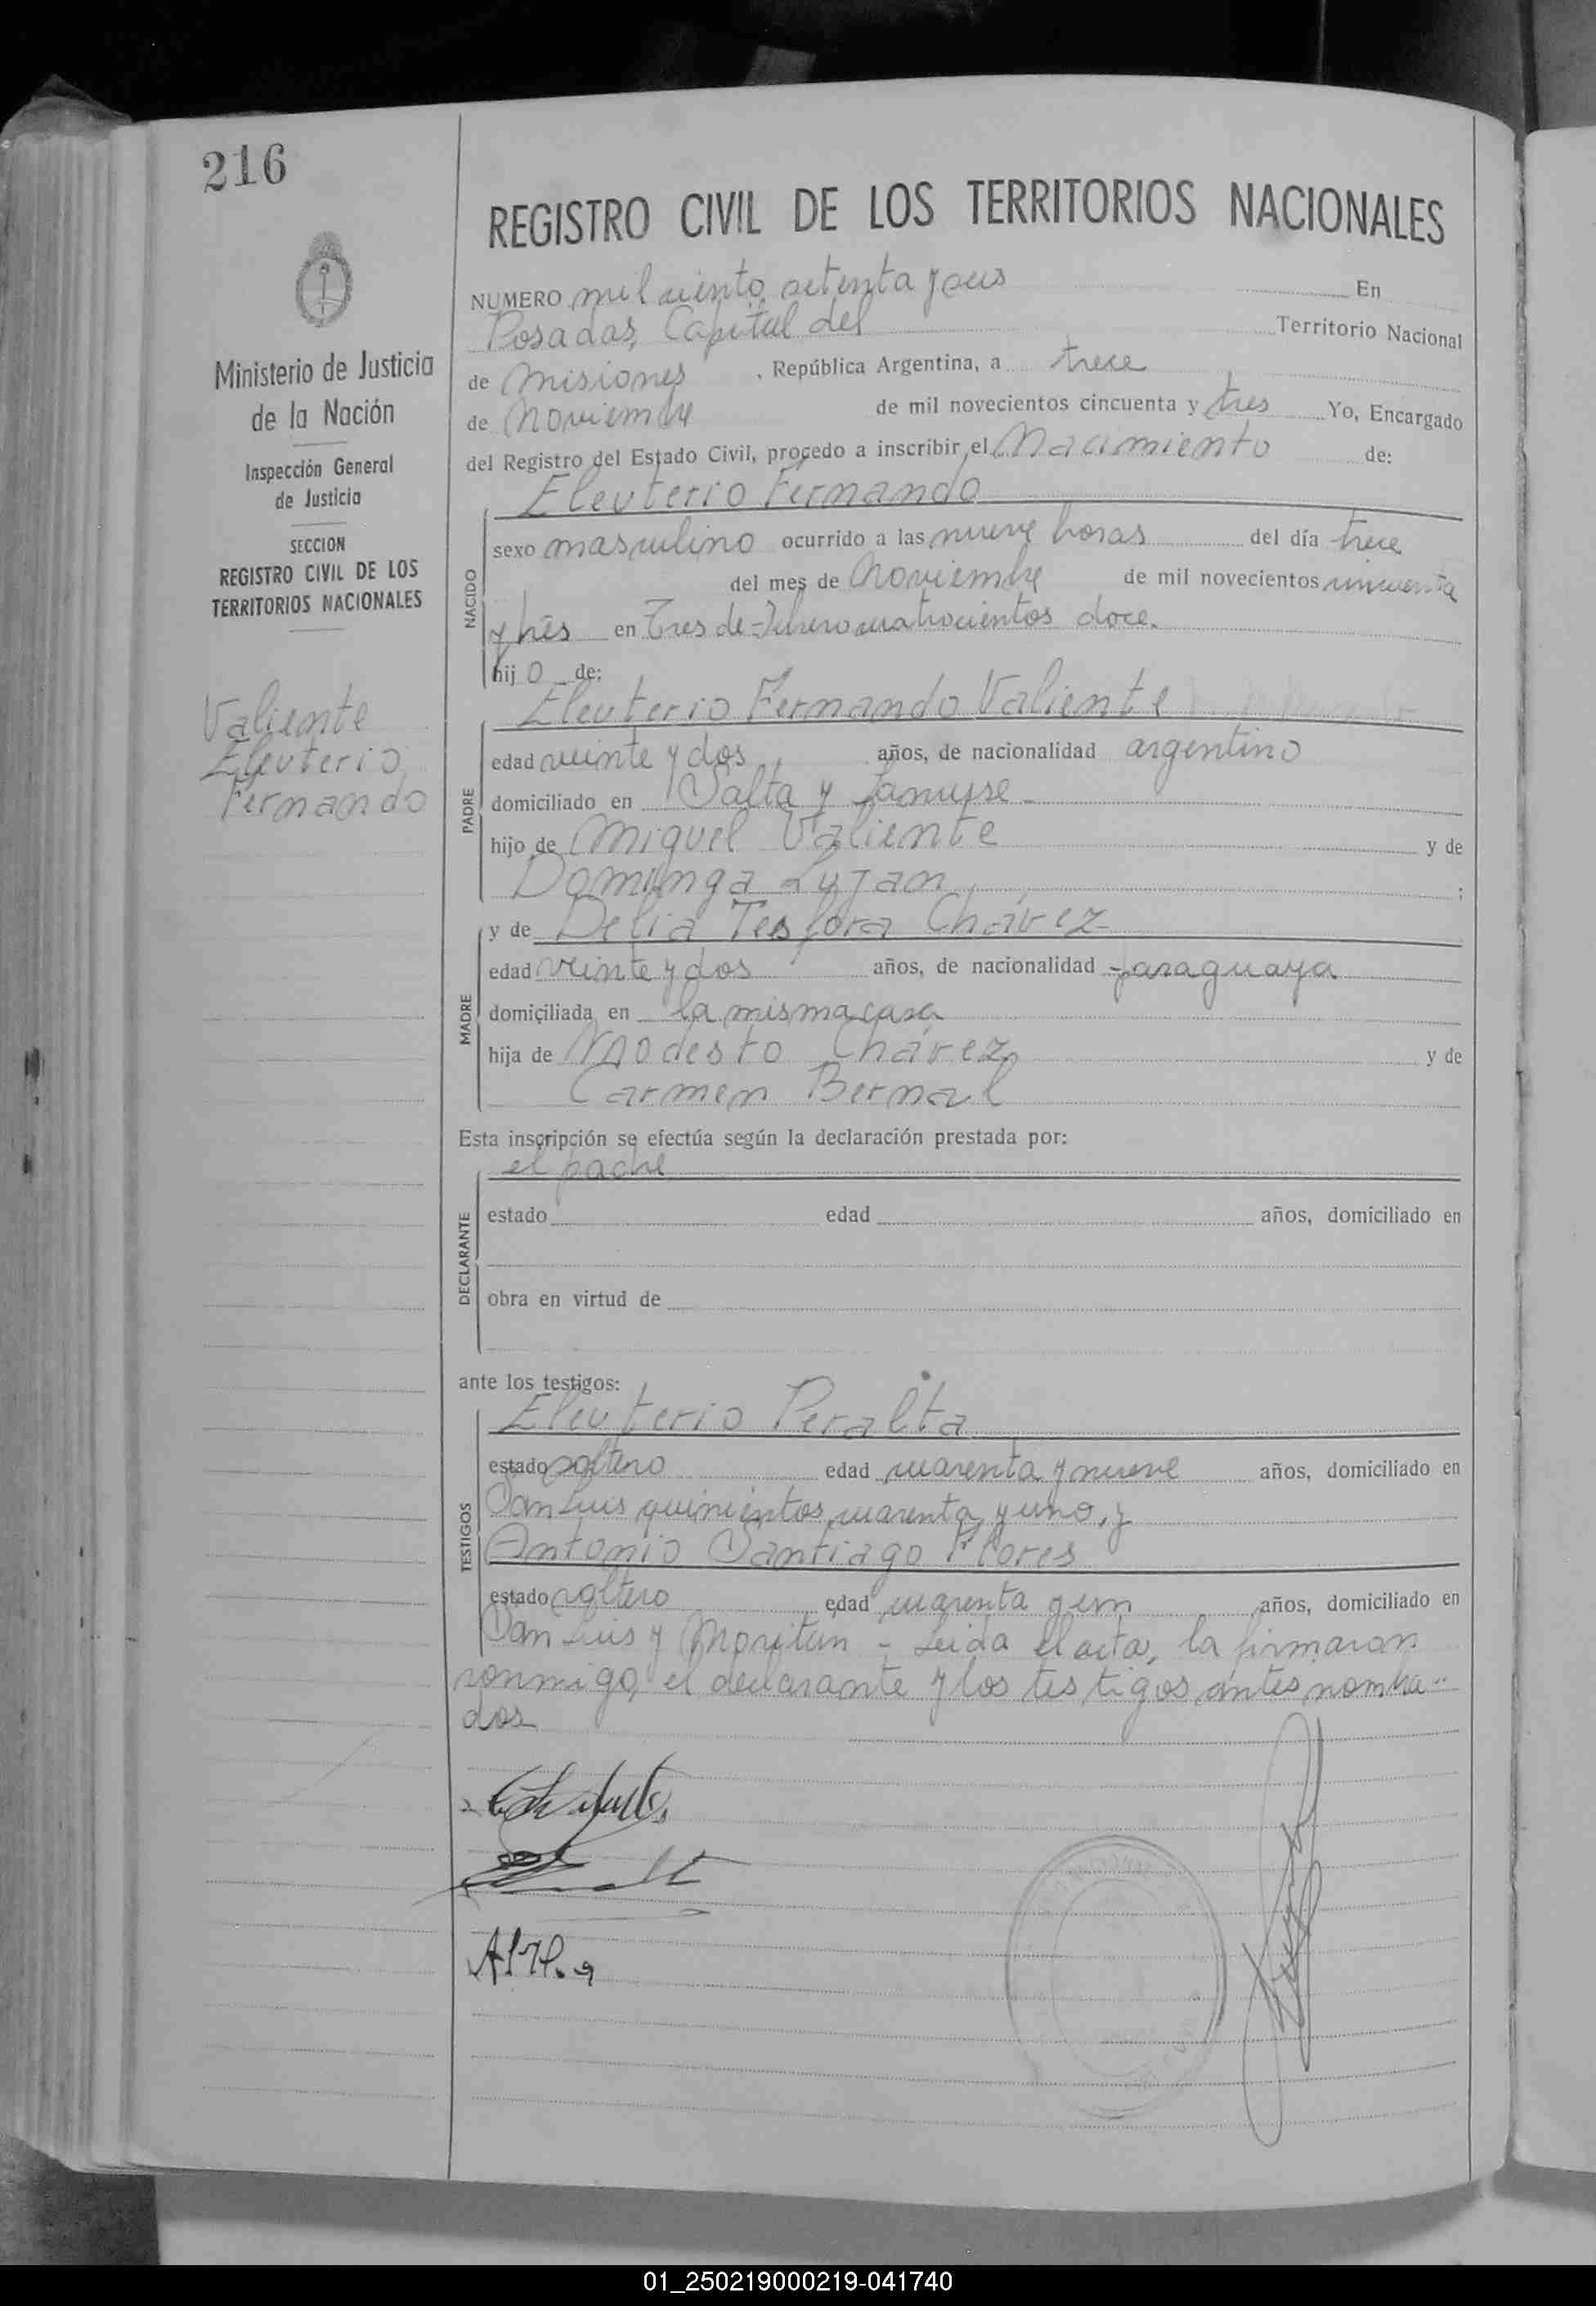 216
REGISTRO CIVIL DE LOS TERRITORIOS NACIONALES
NUMERO mil ciento setenta y seis En
Posadas, Capital del Territorio Nacional
de Misiones, República Argentina, a trece
de Noviembre de mil novecientos cincuenta y tres Yo, Encargado
del Registro del Estado Civil, procedo a inscribir el Nacimiento de:
Ministerio de Justicia
de la Nación
Inspección General
de Justicia
SECCION
REGISTRO CIVIL DE LOS
TERRITORIOS NACIONALES
Valiente
Eleuterio
Fernando
NACIDO
Eleuterio Fernando
sexo masculino ocurrido a las nueve horas del día trece
del mes de Noviembre de mil novecientos cincuenta
y tres en Tres de Febrero cuatrocientos doce.
hij o de:
PADRE
Eleuterio Fernando Valiente
edad veinte y dos años, de nacionalidad argentino
domiciliado en Salta y
hijo de Miguel Valiente y de
Dominga Luján ;
MADRE
y de Delia Chávez
edad veinte y dos años, de nacionalidad paraguaya
domiciliada en la misma casa
hija de Modesto Chávez y de
Carmen Bernal
Esta inscripción se efectúa según la declaración prestada por:
DECLARANTE
el padre
estado edad años, domiciliado en
obra en virtud de
ante los testigos:
TESTIGOS
Eleuterio Peralta
estado soltero edad cuarenta y nueve años, domiciliado en
San Luis quinientos cuarenta y uno, y
Antonio Santiago Flores
estado soltero edad cuarenta y un años, domiciliado en
San Luis y - Leida el acta, la firmaron
conmigo, el declarante y los testigos antes nombra-
dos
01_250219000219-041740